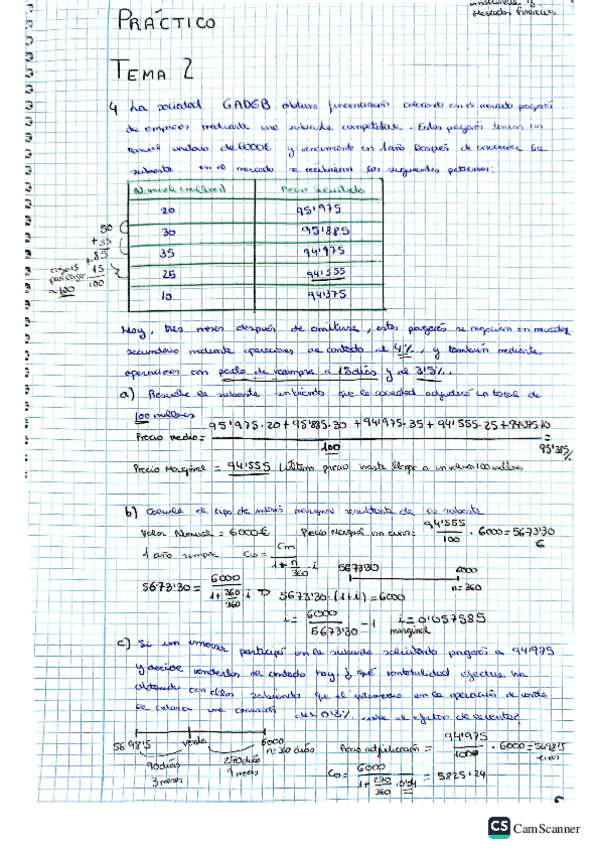 Mercados Financieros
PRÁCTICO
TEMA 2
4 La sociedad GADEB obtuvo financiación colocando en el mercado pagarés
de empresa mediante una subasta competitiva. Estos pagarés tienen un
nominal unitario de 6000€ y vencimiento en 1 año. Después de
subasta en el mercado se recibieron las siguientes peticiones:
Nominal (millones) Precio solicitado
20 95'975
30 95'885
35 94'975
25 94'555
10 94'375
50
+35
85
15
100
Hoy, tres meses después de emitirse, estos pagarés se negocian en mercado
secundario mediante operaciones al contado al 4%, y también mediante
operaciones con pacto de recompra a 15 días y al 3'5%.
a) Resuelve la subasta sabiendo que la sociedad adjudicó un total de
100 millones
Precio medio = 95'975·20+95'885·30+94'975·35+94'555·25+94'375·10
100
=
Precio Marginal = 94'555 (Último precio hasta llegar a 100 millones
b) Calcula el tipo de interés marginal resultante de la subasta
Valor Nominal = 6000€ Precio Marginal en euros: 94'555/100 · 6000 = 5673'30 €
1 año simple Co = Cm / 1+ n/360 · i
5673'30 6000
n=360
5673'30 = 6000 / 1+ 360/360 · i ⇒ 5673'30·(1+i) = 6000
i = 6000/5673'30 - 1 i = 0'057585
marginal
c) Si un inversor participó en la subasta solicitando pagarés a 94'975
y decide venderlos al contado hoy. ¿qué rentabilidad efectiva ha
obtenido con ellos sabiendo que el intermediario en la operación de venta
le cobra una comisión del 0'3% sobre el efectivo de la venta?
5698'5 venta 6000
90 días 270 días
3 meses 9 meses
Precio adjudicación = 94'975/100 · 6000 = 5698'5
euros
Co = 6000 / 1+ 270/360 · 0'04 = 5825'24
CS CamScanner